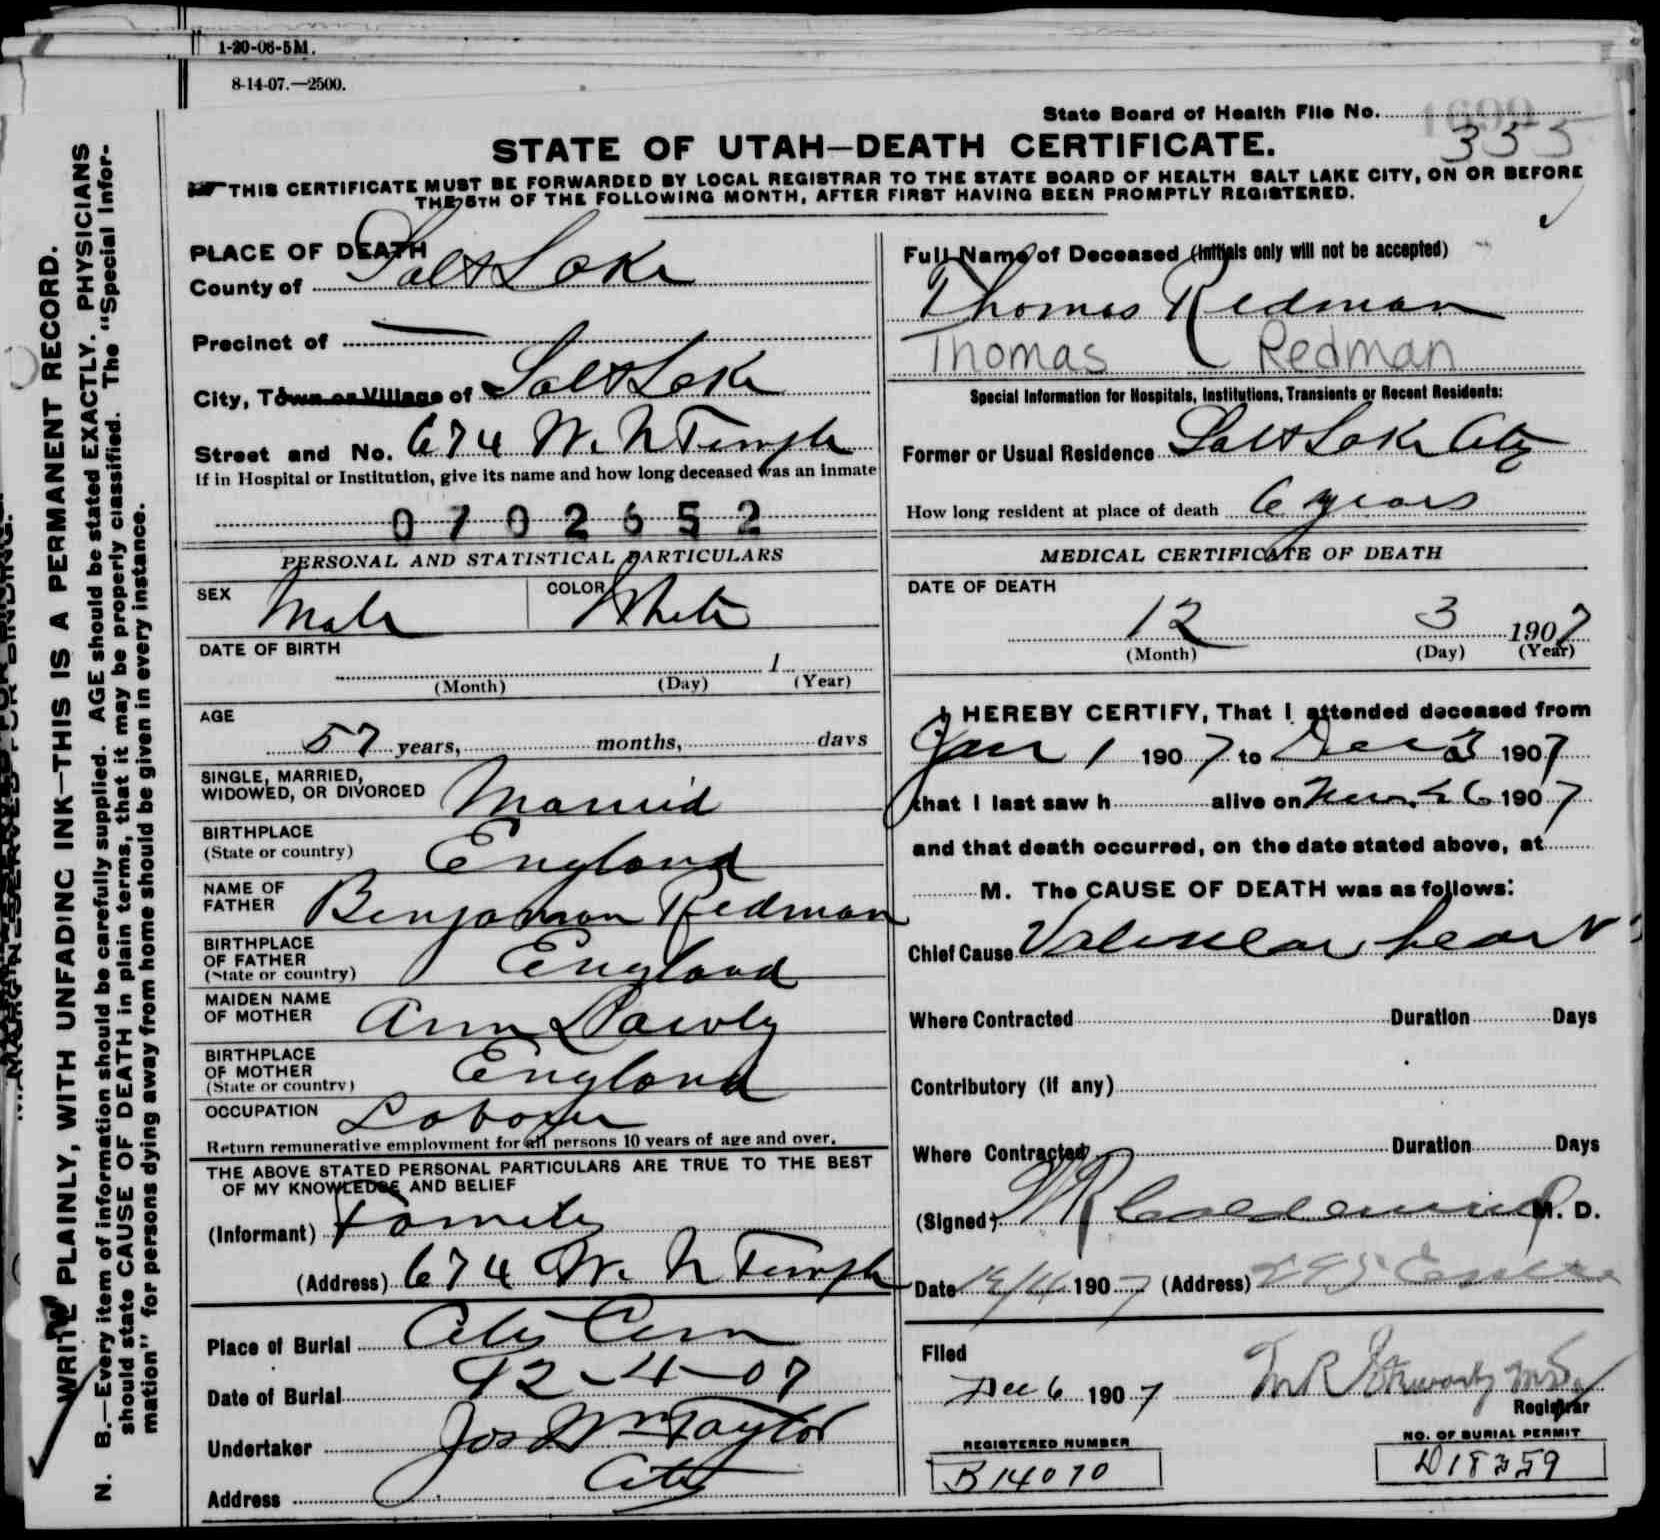 1-20-06-5M.
8-14-07.—2500.
State Board of Health File No.
355
STATE OF UTAH—DEATH CERTIFICATE.
THIS CERTIFICATE MUST BE FORWARDED BY LOCAL REGISTRAR TO THE STATE BOARD OF HEALTH SALT LAKE CITY, ON OR BEFORE
THE 5TH OF THE FOLLOWING MONTH, AFTER FIRST HAVING BEEN PROMPTLY REGISTERED.
WRITE PLAINLY, WITH UNFADING INK—THIS IS A PERMANENT RECORD.
N. B.—Every item of information should be carefully supplied. AGE should be stated EXACTLY. PHYSICIANS
should state CAUSE OF DEATH in plain terms, that it may be properly classified. The "Special Infor-
mation" for persons dying away from home should be given in every instance.
PLACE OF DEATH
County of Salt Lake
Precinct of —
City, Town or Village of Salt Lake
Street and No. 674 W. N Temple
If in Hospital or Institution, give its name and how long deceased was an inmate
0702652
PERSONAL AND STATISTICAL PARTICULARS
SEX Male COLOR White
DATE OF BIRTH
1
(Month) (Day) (Year)
AGE
57 years, months, days
SINGLE, MARRIED,
WIDOWED, OR DIVORCED Married
BIRTHPLACE
(State or country) England
NAME OF
FATHER Benjaman Redman
BIRTHPLACE
OF FATHER
(State or country) England
MAIDEN NAME
OF MOTHER Ann
BIRTHPLACE
OF MOTHER
(State or country) England
OCCUPATION Laborer
Return remunerative employment for all persons 10 years of age and over.
THE ABOVE STATED PERSONAL PARTICULARS ARE TRUE TO THE BEST
OF MY KNOWLEDGE AND BELIEF
(Informant) Family
(Address) 674 W. N Temple
Place of Burial City Cem
Date of Burial 12-4-07
Undertaker Jos Wm Taylor
Address City
Full Name of Deceased (Initials only will not be accepted)
Thomas Redman
Thomas Redman
Special Information for Hospitals, Institutions, Transients or Recent Residents:
Former or Usual Residence Salt Lake City
How long resident at place of death 6 years
MEDICAL CERTIFICATE OF DEATH
DATE OF DEATH
12 3 1907
(Month) (Day) (Year)
I HEREBY CERTIFY, That I attended deceased from
Jan 1 1907 to Dec 3 1907
that I last saw h alive on Nov. 26 1907
and that death occurred, on the date stated above, at
M. The CAUSE OF DEATH was as follows:
Chief Cause Valvular heart
Where Contracted Duration Days
Contributory (if any)
Where Contracted Duration Days
(Signed) M. D.
Date 12/4 1907 (Address)
Filed
Dec 6 1907
Registrar
REGISTERED NUMBER
B14070
NO. OF BURIAL PERMIT
D18359